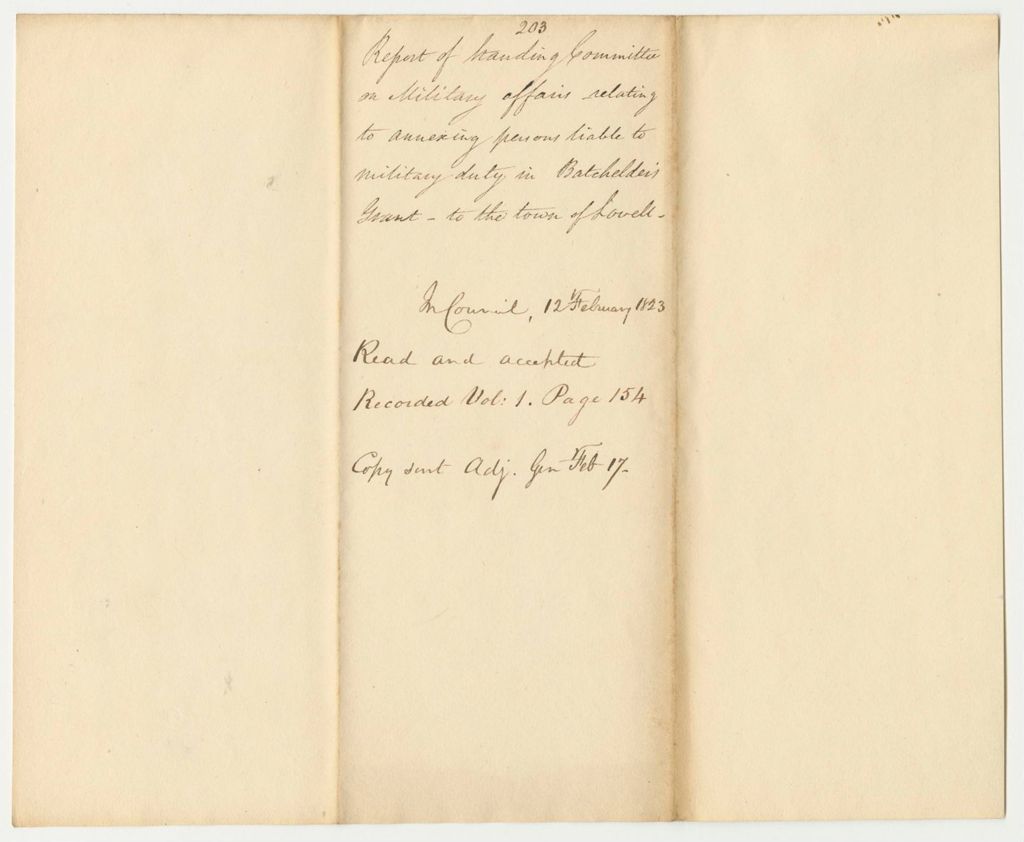 203
Report of Standing Committee
on Military affairs relating
to annexing persons liable to
military duty in Batchelder's
Grant - to the town of Lovell -
In Council, 12 February 1823
Read and accepted
Recorded Vol: 1. Page 154
Copy sent Adj. Gen Feb 17-